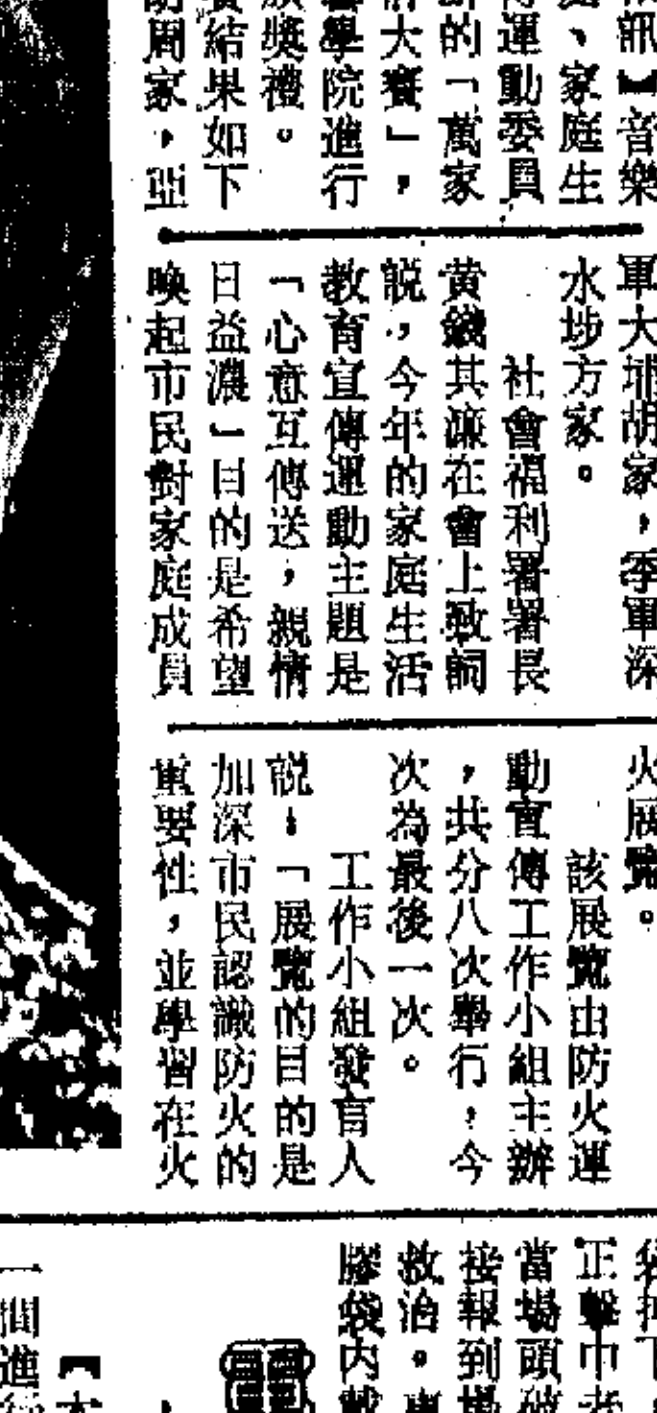 訊】音樂
、家庭生
運動委員
的「萬家
大賽」，
學院進行
獎禮。
結果如下
周家，亞
軍大埔胡家，季軍深
水埗方家。
社會福利署署長
黃錢其濂在會上致詞
說，今年的家庭生活
教育宣傳運動主題是
「心意互傳送，親情
日益濃」目的是希望
喚起市民對家庭成員
火展覽。
該展覽由防火運
動宣傳工作小組主辦
，共分八次舉行，今
次為最後一次。
工作小組發言人
說：「展覽的目的是
加深市民認識防火的
重要性，並學習在火
正擊中
當場頭破
接報到場
救治。
膠袋內載
【本
一間進